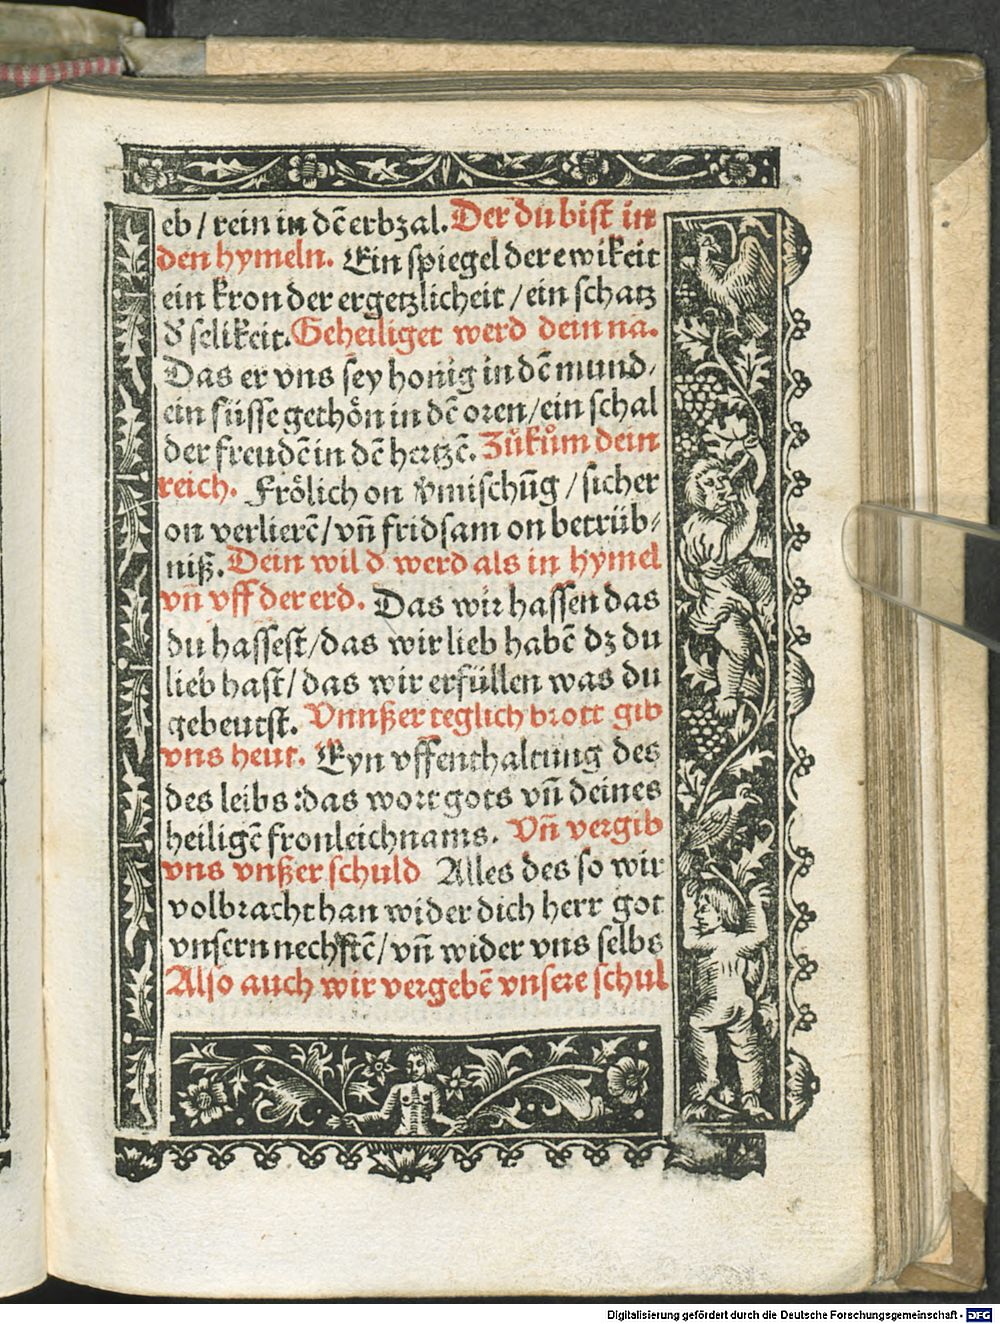 eb / rein in dē erbzal. Der du bist in
den hymeln. Ein spiegel der ewikeit
ein kron der ergetzlicheit / ein schatz
d̛ selikeit. Geheiliget werd dein nā.
Das er vns sey honig in dē mund /
ein süsse gethön in dē oren / ein schal
der freudē in dē hertzē. Zůkům dein
reich. Frölich on v̛mischūg / sicher
on verlierē / vñ fridsam on betrüb⸗
niß. Dein wil d werd als in hymel
vñ vff der erd. Das wir hassen das
du hassest / das wir lieb habē dz du
lieb hast / das wir erfüllen was du
gebeutst. Vnnßer teglich brott gib
vns heut. Eyn vffenthaltung des
des leibs : das wort gots vñ deines
heiligē fronleichnams. Vñ vergib
vns vnßer schuld Alles des so wir
volbracht han wider dich herr got
vnsern nechstē / vñ wider vns selbs
Also auch wir vergebē vnsere schul
Digitalisierung gefördert durch die Deutsche Forschungsgemeinschaft - DFG